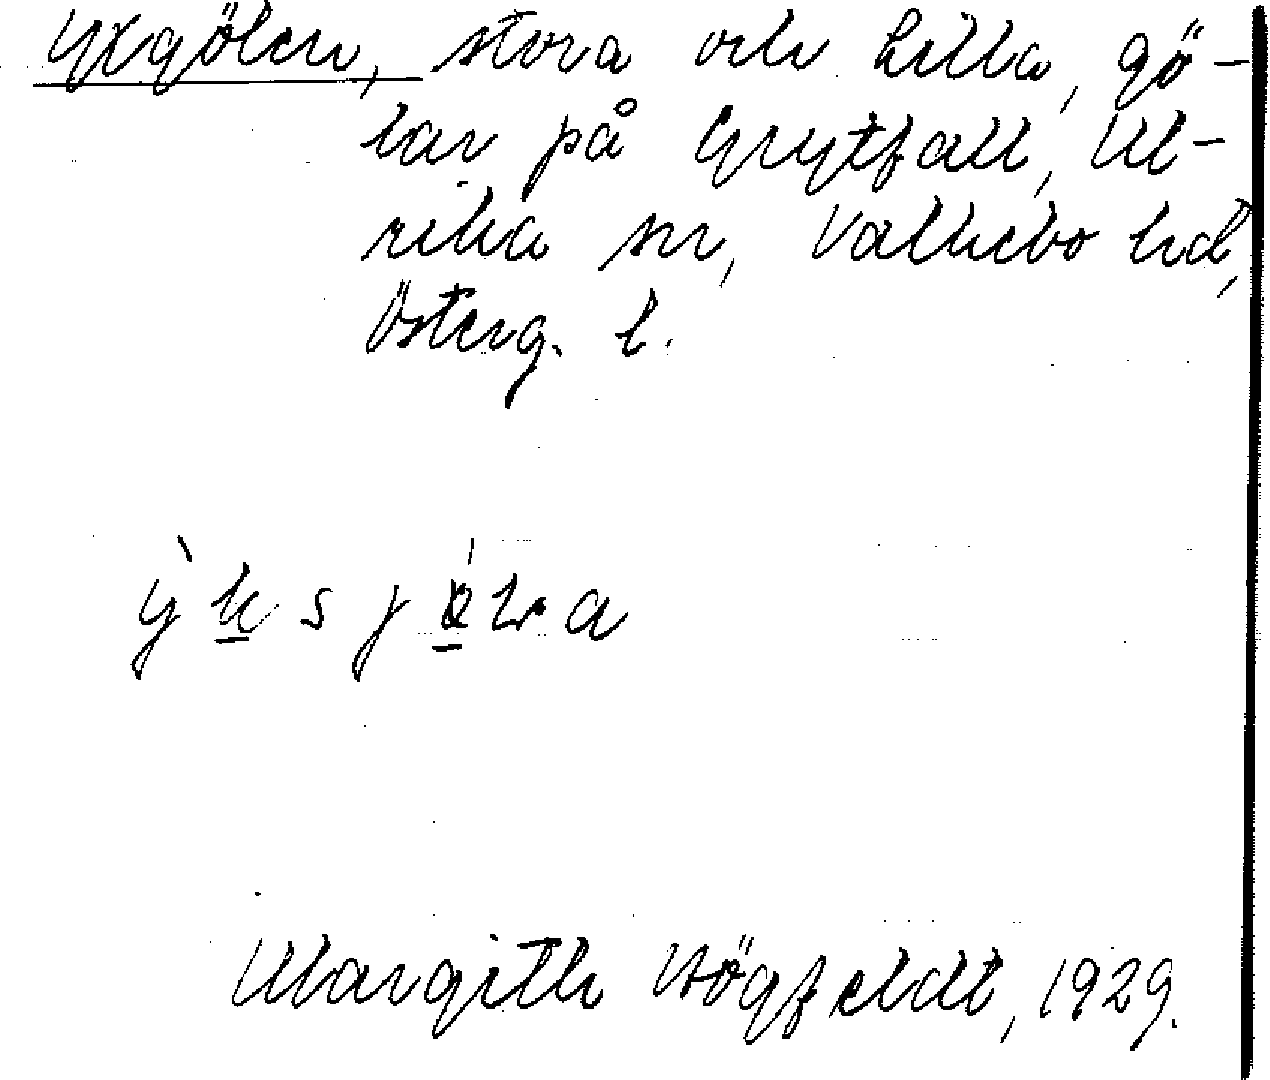 Yxgölen, stora och Lilla, gö-
lar på Grytfall, Ul-
rika sn, Valkebo hd,
Österg. l.
Margith Högfeldt, 1929.